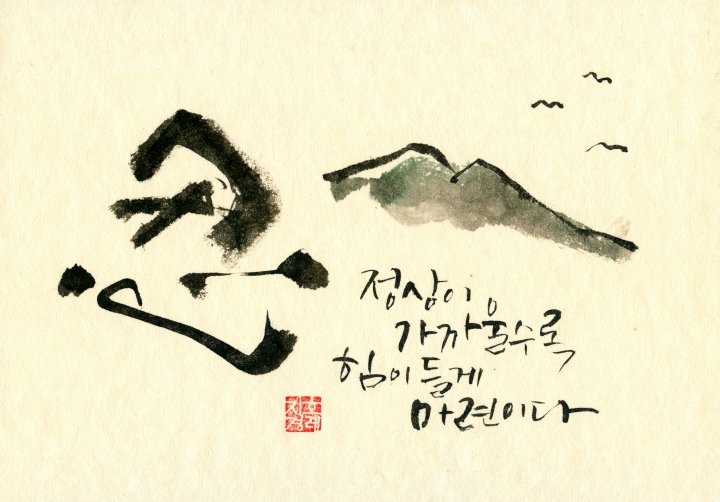 忍
정상이
가까울수록
힘이들게
마련이다